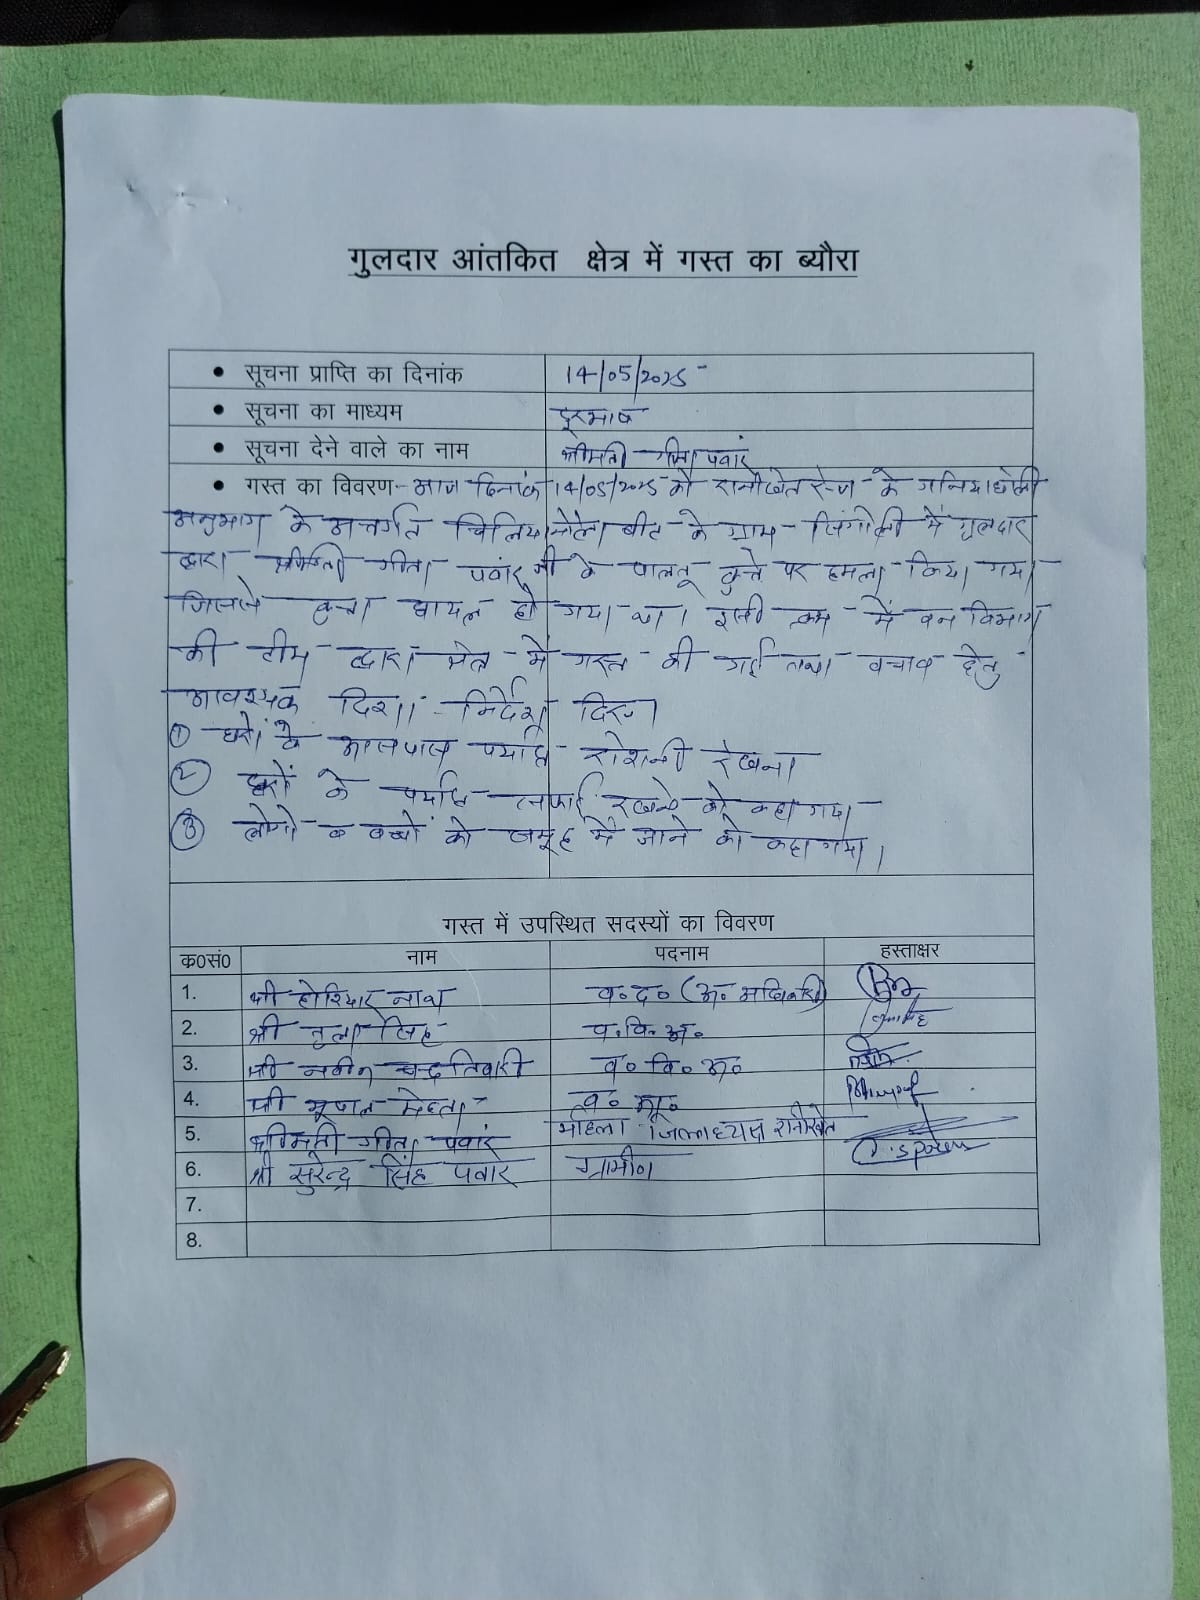 गुलदार आंतकित क्षेत्र में गस्त का ब्यौरा
• सूचना प्राप्ति का दिनांक 14/05/2025
• सूचना का माध्यम दूरभाष
• सूचना देने वाले का नाम श्रीमती गीता पवांर
• गस्त का विवरण- आज दिनांक 14/05/2025 को रानीखेत रेन्ज के गनियाद्योली
अनुभाग के अन्तर्गत चिलियानौला बीट के ग्राम- में गुलदार
द्वारा श्रीमती गीता पवांर जी के पालतू कुत्ते पर हमला किया गया
जिससे कुत्ता घायल हो गया था। इसी क्रम में वन विभाग
की टीम द्वारा क्षेत्र में गस्त की गई तथा बचाव हेतु
आवश्यक दिशा- निर्देश दिए।
① घरों के आसपास पर्याप्त रोशनी रखना
② घरों के पर्याप्त सफाई रखने को कहा गया
③ लोगो व बच्चों को समूह में जाने को कहा गया।
गस्त में उपस्थित सदस्यों का विवरण
क0सं0 नाम पदनाम हस्ताक्षर
1. श्री होशियार नाथ व० द० (अ० अधिकारी)
2. श्री सिंह व. वि. अ.
3. श्री नवीन चन्द्र तिवारी व० वि० अ०
4. श्री भूपाल मेहता
5. श्रीमती गीता पवांर महिला जिलाध्यक्ष रानीखेत
6. श्री सुरेन्द्र सिंह पवांर ग्रामीण
7.
8.